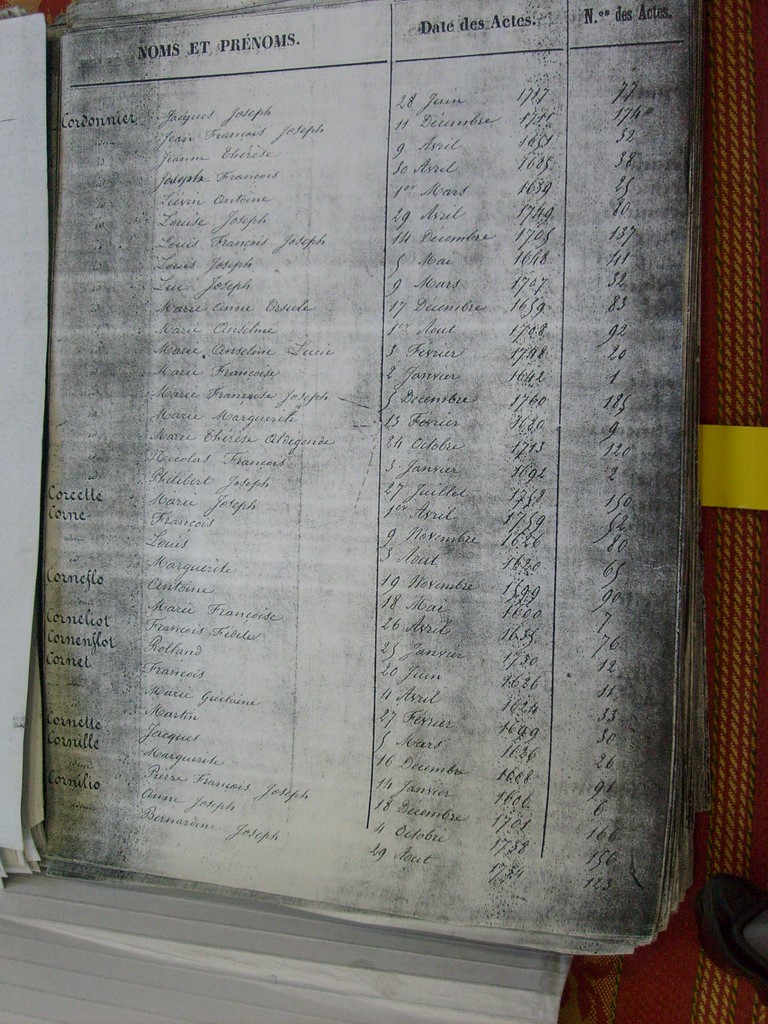 NOMS ET PRÉNOMS. Date des Actes. N.os des Actes.
Cordonnier Jacques Joseph 28 Juin 1717 77
id Jean François Joseph 11 Décembre 1711 174
id Jeanne Thérèse 9 Avril 1651 32
id Joseph François 30 Avril 1685 38
id Lievin Antoine 1er Mars 1639 25
id Louise Joseph 29 Avril 1749 80
id Louis François Joseph 14 Décembre 1705 137
id Louis Joseph 5 Mai 1648 41
id Luc Joseph 9 Mars 1707 32
id Marie Anne Ursule 17 Décembre 1659 83
id Marie Anselme 1er Aout 1708 92
id Marie Anselme Lucie 3 Février 1748 20
id Marie Françoise 2 Janvier 1642 1
id Marie Françoise Joseph 5 Décembre 1760 185
id Marie Marguerite 13 Février 1680 9
id Marie Thérèse Aldegonde 24 Octobre 1713 120
id Nicolas François 3 Janvier 1692 2
id Philibert Joseph 27 Juillet 1758 150
Corcette Marie Joseph 1er Avril 1759 52
Corne François 9 Novembre 1626 80
idem Louis 3 Aout 1620 65
idem Marguerite 19 Novembre 1599 90
Corneflo Antoine 18 Mai 1600 7
idem Marie Françoise 26 Avril 1635 76
Corneliot François Fidele 25 Janvier 1730 12
Cornenflot Rolland 20 Juin 1626 11
Cornet François 4 Avril 1624 33
idem Marie Guilaine 27 Février 1699 30
Martin 5 Mars 1626 26
Cornette Jacques 16 Décembre 1688 91
Cornille Marguerite 14 Janvier 1606 6
idem Pierre François Joseph 18 Décembre 1701 166
Cornilio Anne Joseph 4 Octobre 1758 156
idem Bernardine Joseph 29 Aout 1734 123